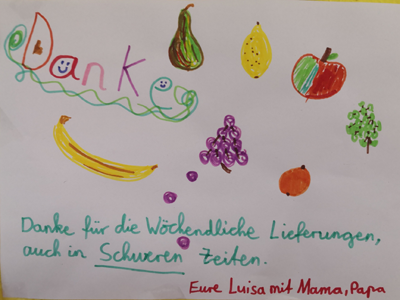 Danke
Danke für die Wöchendliche Lieferungen,
auch in Schweren Zeiten.
Eure Luisa mit Mama, Papa